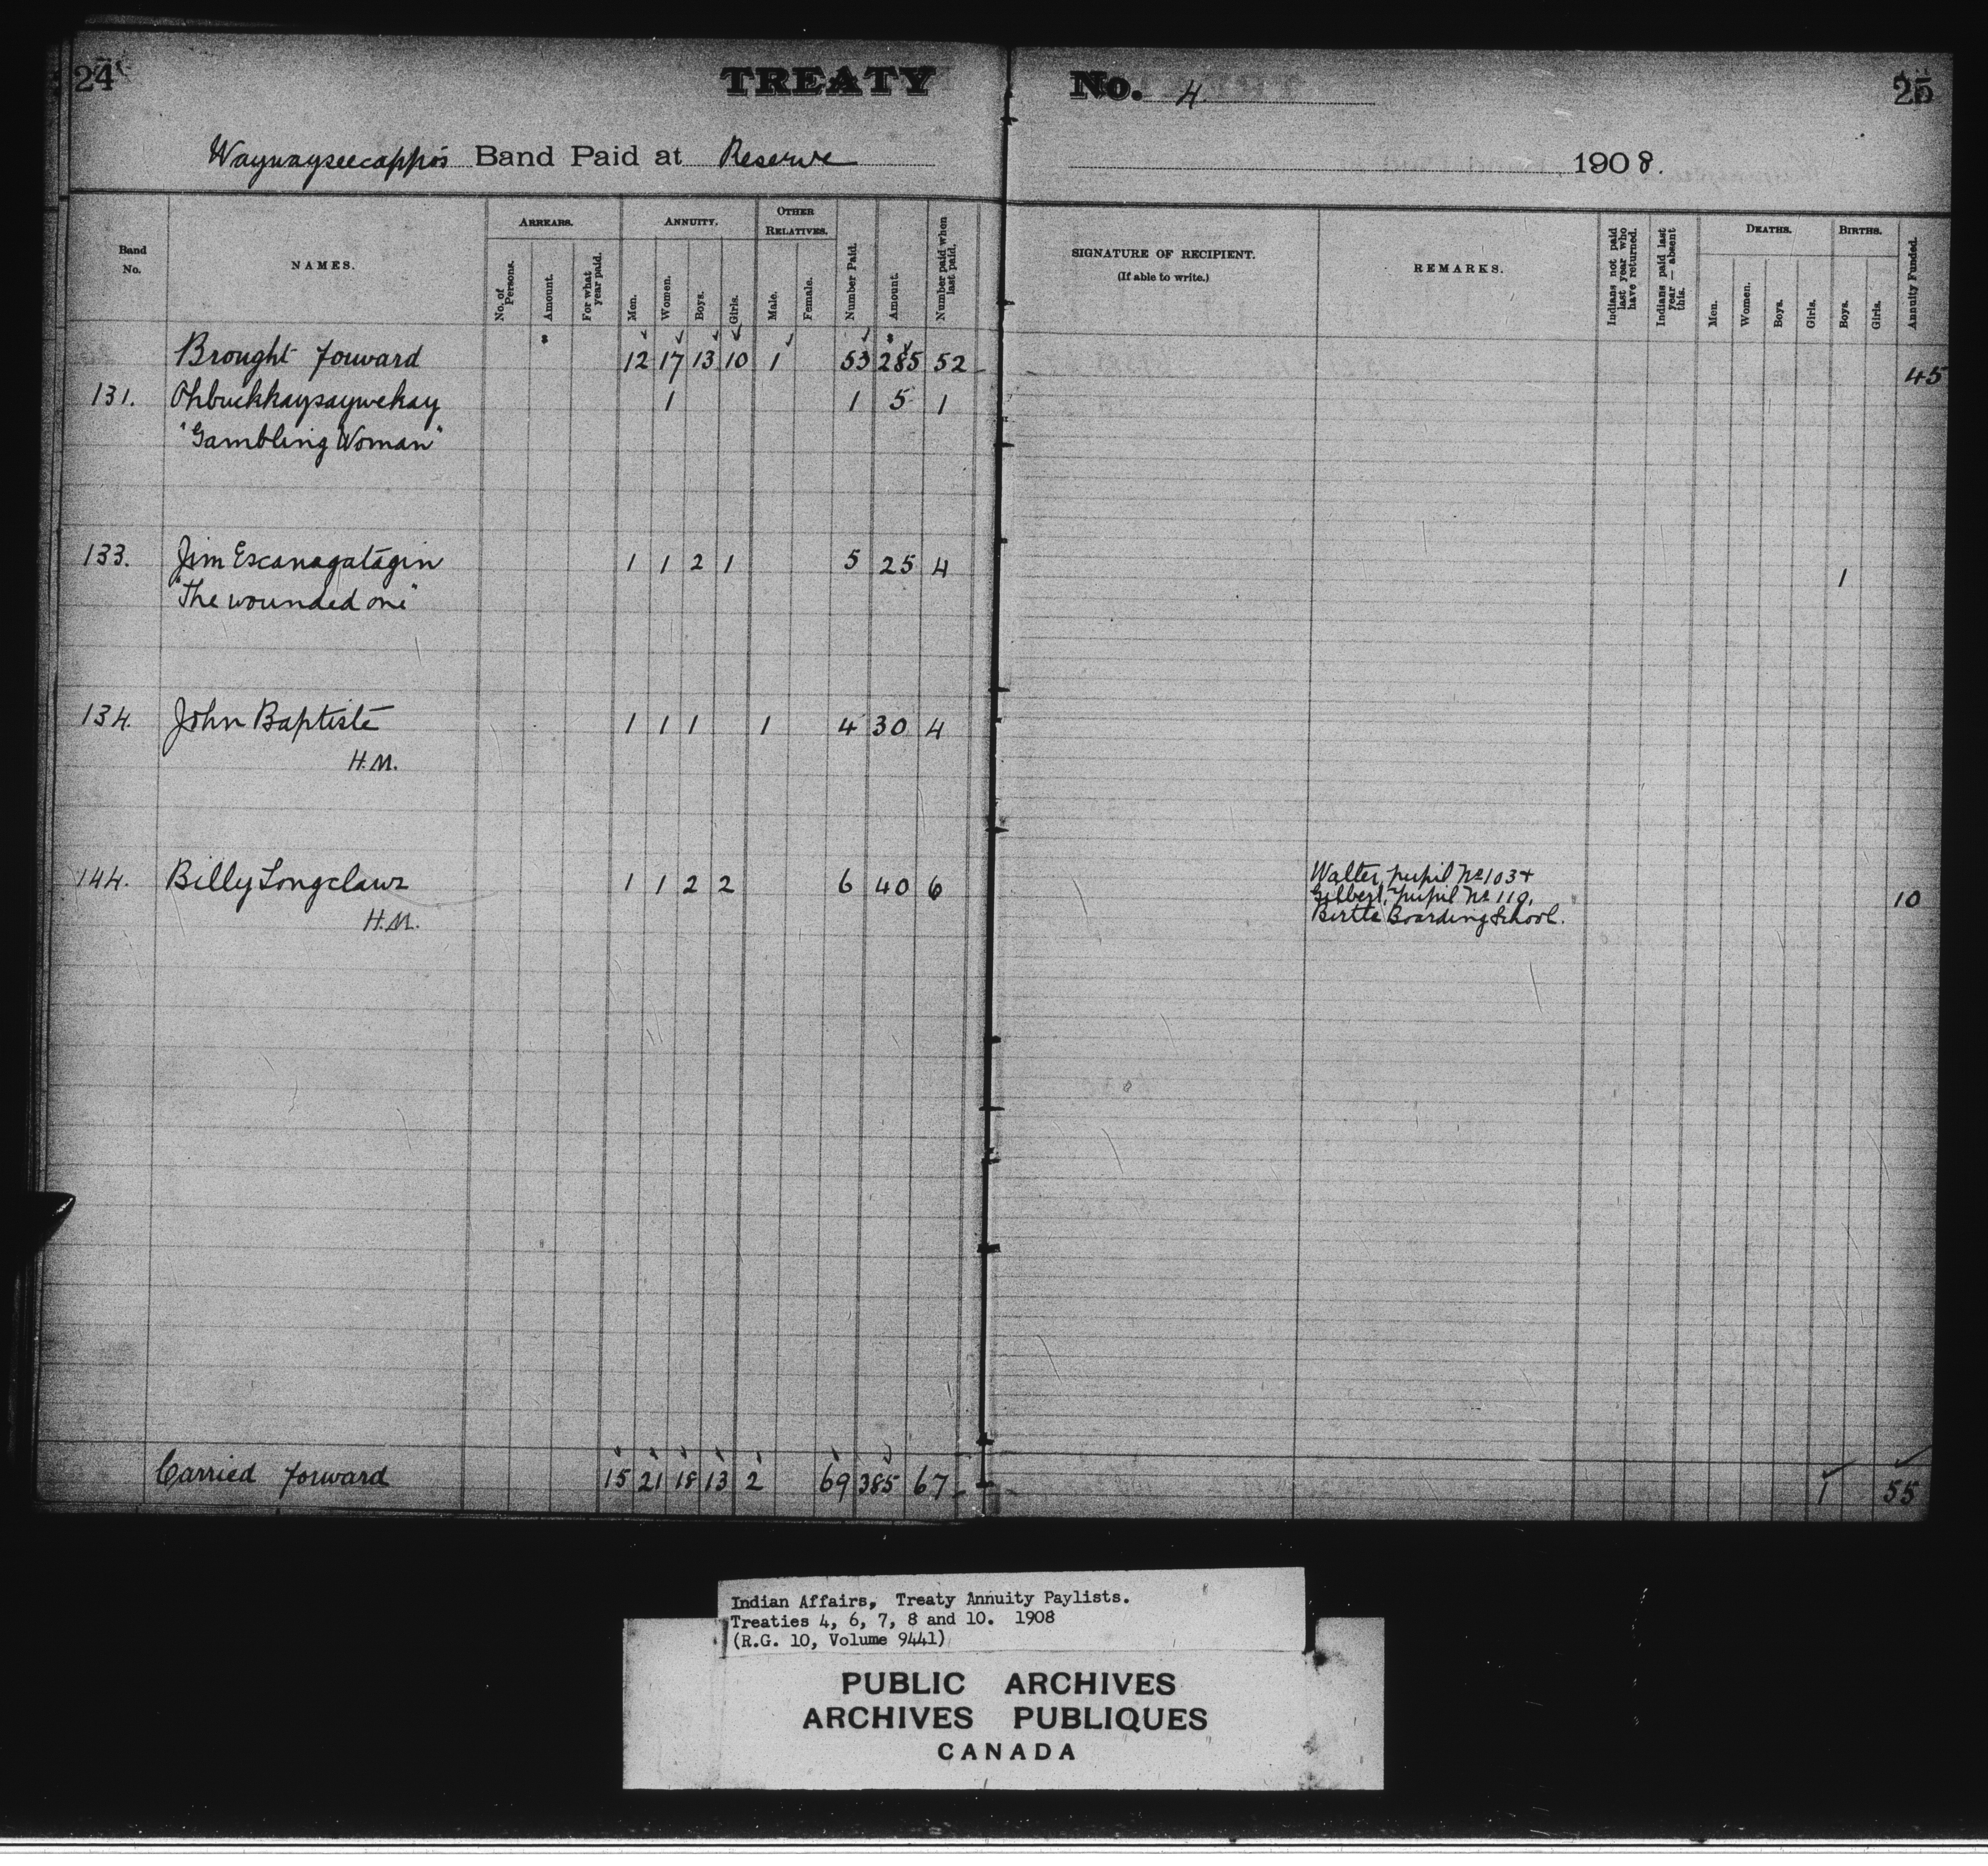 24 TREATY No. 4 25
Waywayseecappo's Band Paid at Reserve 1908.
Band No.
NAMES.
ARREARS.
No. of Persons.
Amount.
For what year paid.
ANNUITY.
Men.
Women.
Boys.
Girls.
OTHER RELATIVES.
Male.
Female.
Number Paid.
Amount.
Number paid when last paid.
SIGNATURE OF RECIPIENT.
(If able to write.)
REMARKS.
Indians not paid last year who have returned.
Indians paid last year — absent this.
DEATHS.
Men.
Women.
Boys.
Girls.
BIRTHS.
Boys.
Girls.
Annuity Funded.
Brought forward 12 17 13 10 1 53 285 52 45
131. Ohbuckkaysaywekay 1 1 5 1
"Gambling Woman"
133. Jim Escanagatagin 1 1 2 1 5 25 4 1
"The wounded one"
134. John Baptiste 1 1 1 1 4 30 4
H.M.
144. Billy Longclaws 1 1 2 2 6 40 6 10
H.M.
Walter, pupil No 103 +
Gilbert, pupil No 110,
Birtle Boarding School.
Carried forward 15 21 18 13 2 69 385 67 1 55
Indian Affairs, Treaty Annuity Paylists.
Treaties 4, 6, 7, 8 and 10. 1908
(R.G. 10, Volume 9441)
PUBLIC ARCHIVES
ARCHIVES PUBLIQUES
CANADA